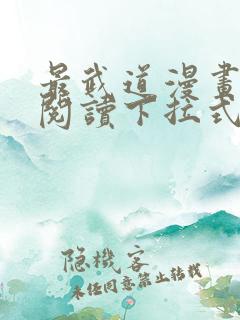 最武道漫畫
閱讀下拉式
隐機客
未任同意禁止转載